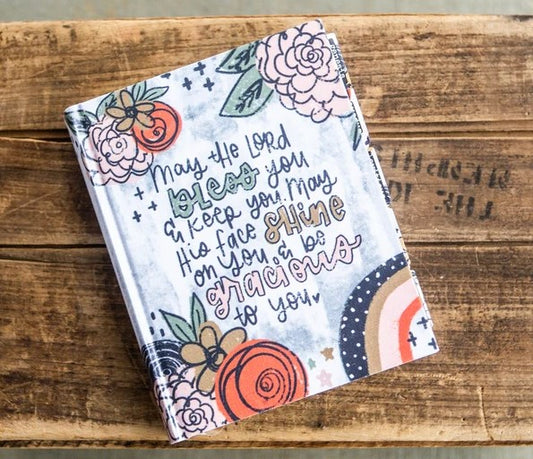 May the Lord
bless you
& keep you. May
His face shine
on you & be
gracious
to you.